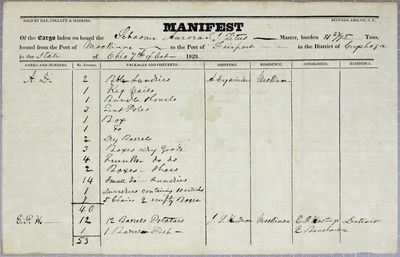 SOLD BY DAY, FOLLETT & HASKINS,
BUFFALO, ERIE CO. N. Y.
MANIFEST
Of the Cargo laden on board the Schooner Aurora Master, burden Tons,
bound from the Port of Mackinac to the Port of Fairport in the District of Cuyahoga
in the State of Ohio 7th of Oct 1829.
MARKS AND NUMBERS. No. Entries. PACKAGES AND CONTENTS. SHIPPERS. RESIDENCE. CONSIGNEES. RESIDENCE.
A. D. 2 Bbls Sundries Mackinac
1 Keg Nails
1 Bundle Shovels
3 Tent Poles
1 Box
1 do
2 Dry Barrels
3 Boxes Dry Goods
4 Trunks do do
2 Boxes Shoes
14 Small do Sundries
1 Sundries containing 10 articles
5 Chairs 2 empty Boxes
40
E. P. H. 12 12 Barrels Potatoes Mackinac E. P. Hastings Detroit
1 1 Barrel Fish
53